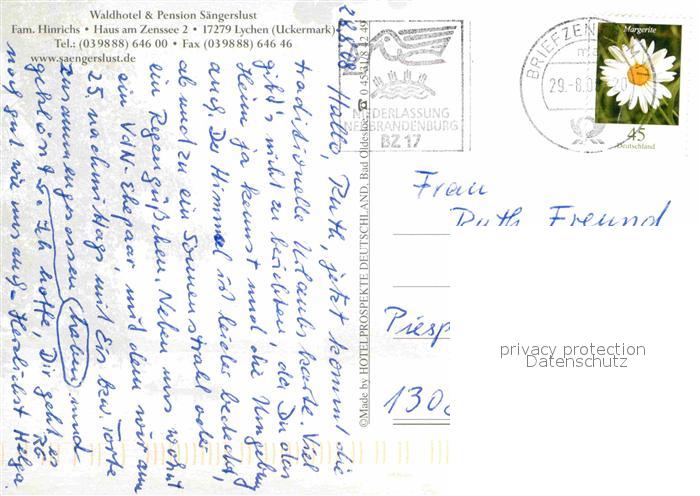 Waldhotel & Pension Sängerslust
Fam. Hinrichs • Haus am Zenssee 2 • 17279 Lychen (Uckermark)
Tel.: (039888) 646 00 • Fax (039888) 646 46
www.saengerslust.de
Hallo, Ruth, jetzt kommt die
traditionelle Urlaubskarte. Viel
gibt's nicht zu berichten, da Du das
Heim ja kennst und die Umgebung
auch. Der Himmel ist leider bedeckt,
ab und zu ein Sonnenstrahl oder
ein Regengüßchen. Neben uns wohnt
ein VdN-Ehepaar, mit dem wir am
25. nachmittags mit Eis bzw. Torte
zusammengesessen haben und
geklönt. Ich hoffe, Dir geht es
noch gut wie uns auch - Herzlichst Helga
©Made by HOTELPROSPEKTE DEUTSCHLAND, Bad Oldesloe, ☎ 0 45 31/8 12 49
NIEDERLASSUNG
NEUBRANDENBURG
BZ 17
BRIEFZEN
29.-8.0
Margerite
45
Deutschland
Frau
Ruth Freund
Piesp
130
privacy protection
Datenschutz